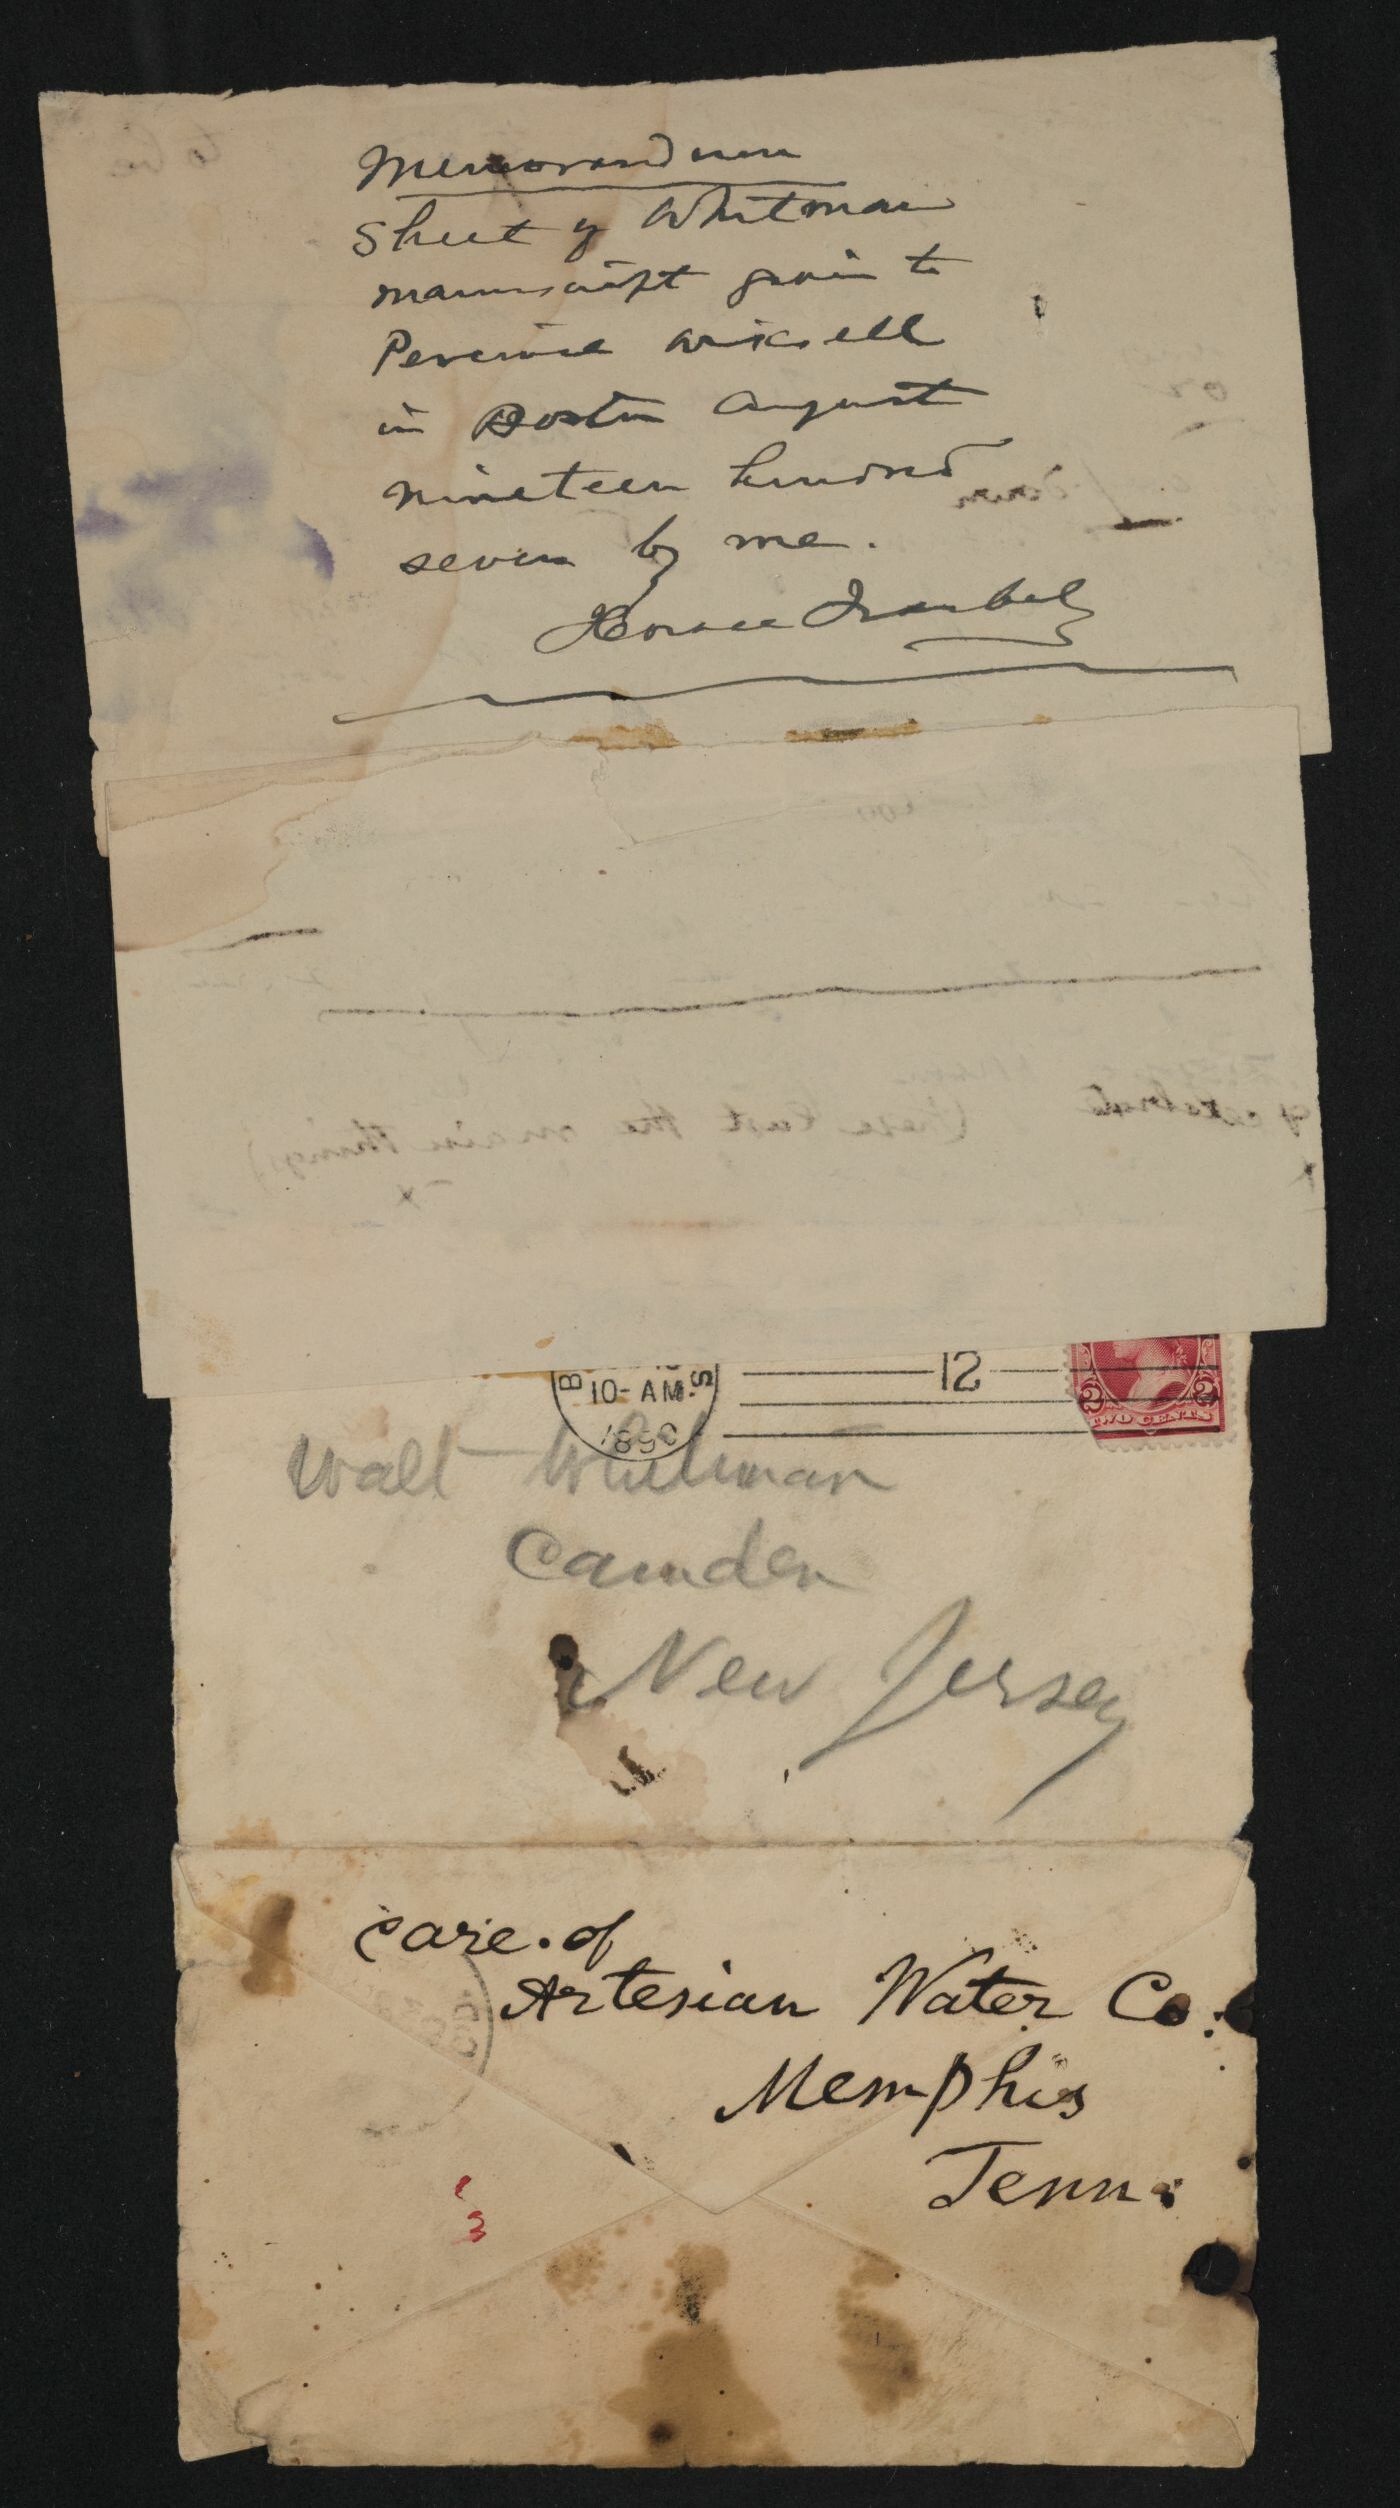 Memorandum
Sheet of Whitman
manuscript given to
Percival Wiksell
in Boston August
nineteen hundred
seven by me.
Horace Traubel
(these last the main things)
B S
10-AM.
1890
12
2 2
TWO CENTS
Walt Whitman
Camden
New Jersey
care of
Artesian Water Co.
Memphis
Tenn.
3